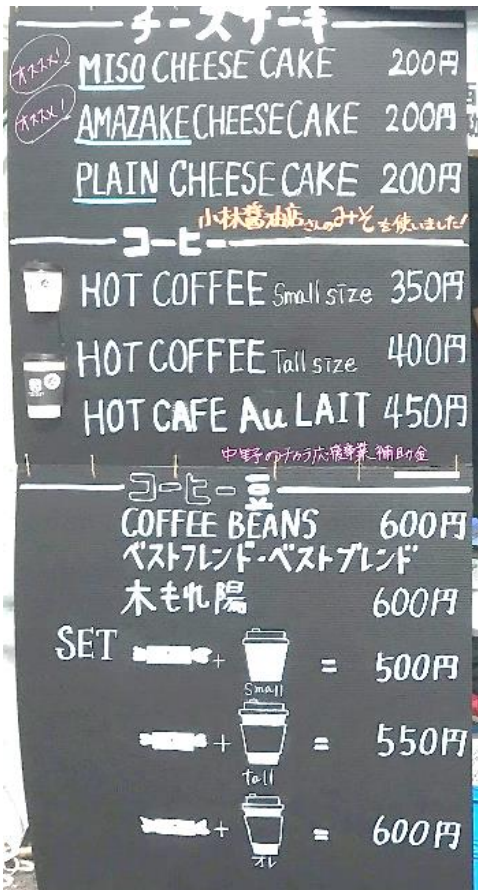 チーズケーキ
オススメ!
MISO CHEESE CAKE 200円
オススメ!
AMAZAKE CHEESE CAKE 200円
PLAIN CHEESE CAKE 200円
小林醤油店さんのみそを使いました!
コーヒー
HOT COFFEE Small size 350円
HOT COFFEE Tall size 400円
HOT CAFE Au LAIT 450円
中野のチカラ応援事業補助金
コーヒー豆
COFFEE BEANS 600円
ベストフレンド・ベストブレンド
木もれ陽 600円
SET + = 500円
Small
+ = 550円
tall
+ = 600円
オレ